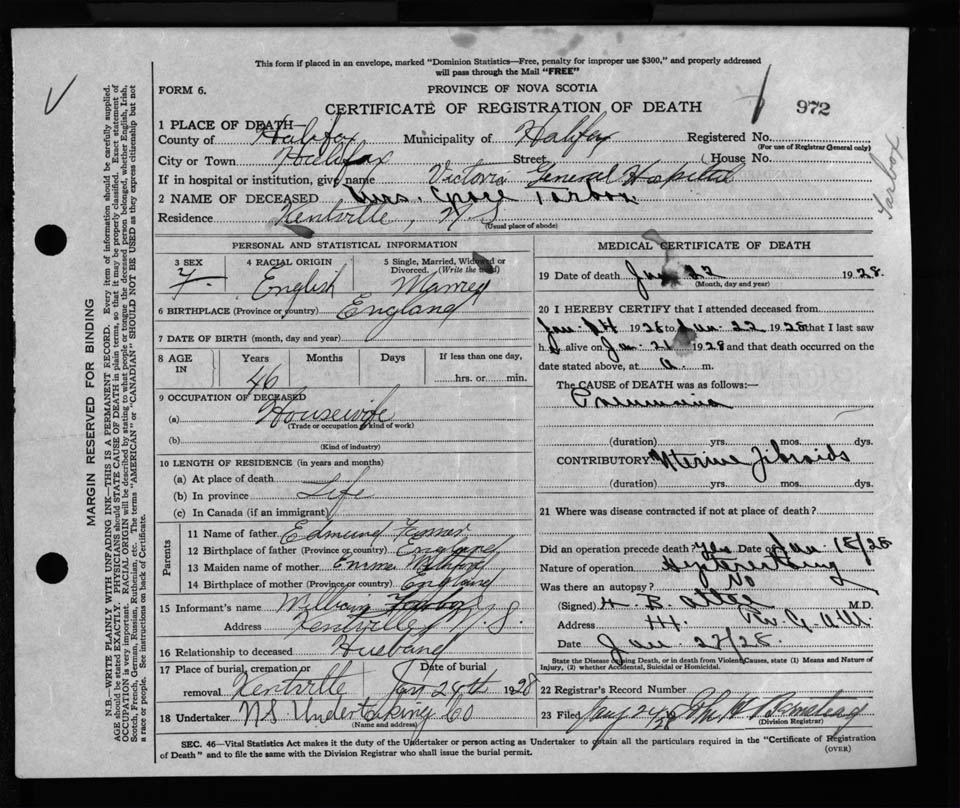 This form if placed in an envelope, marked "Dominion Statistics—Free, penalty for improper use $300," and properly addressed
will pass through the Mail "FREE"
FORM 6.
PROVINCE OF NOVA SCOTIA
CERTIFICATE OF REGISTRATION OF DEATH
972
Tarbox
MARGIN RESERVED FOR BINDING
N.B.—WRITE PLAINLY WITH UNFADING INK—THIS IS A PERMANENT RECORD. Every item of information should be carefully supplied.
AGE should be stated EXACTLY. PHYSICIANS should STATE CAUSE OF DEATH in plain terms, so that it may be properly classified. Exact statement of
OCCUPATION is very important. RACIAL ORIGIN will be described by stating to what people or tongue the deceased person belonged, whether English, Irish,
Scotch, French, German, Russian, Ruthenian, etc. The terms "AMERICAN" or "CANADIAN" SHOULD NOT BE USED as they express citizenship but not
a race or people. See instructions on back of Certificate.
1 PLACE OF DEATH
County of Halifax Municipality of Halifax Registered No.
(For use of Registrar General only)
City or Town Halifax Street House No.
If in hospital or institution, give name Victoria General Hospital
2 NAME OF DECEASED Mrs. Grace Tarbox
Residence Kentville, N.S
(Usual place of abode)
PERSONAL AND STATISTICAL INFORMATION
3 SEX
F.
4 RACIAL ORIGIN
English
5 Single, Married, Widowed or
Divorced. (Write the word)
Married
6 BIRTHPLACE (Province or country) England
7 DATE OF BIRTH (month, day and year)
8 AGE IN
Years Months Days If less than one day,
46 hrs. or min.
9 OCCUPATION OF DECEASED
(a) Housewife
(Trade or occupation or kind of work)
(b)
(Kind of industry)
10 LENGTH OF RESIDENCE (in years and months)
(a) At place of death
(b) In province Life
(c) In Canada (if an immigrant)
Parents
11 Name of father Edmund
12 Birthplace of father (Province or country) England
13 Maiden name of mother Emma
14 Birthplace of mother (Province or country) England
15 Informant's name
Address Kentville, N.S.
16 Relationship to deceased Husband
17 Place of burial, cremation or Date of burial
removal Kentville Jan 24th 1928
18 Undertaker N S Undertaking Co
(Name and address)
MEDICAL CERTIFICATE OF DEATH
19 Date of death Jan 22 1928.
(Month, day and year)
20 I HEREBY CERTIFY that I attended deceased from
Jan. 14 1928 to Jan. 22 1928 that I last saw
h alive on Jan. 21 1928 and that death occurred on the
date stated above, at a. m.
The CAUSE OF DEATH was as follows:
Pneumonia
(duration) yrs. mos. dys.
CONTRIBUTORY Uterine Fibroids
(duration) yrs. mos. dys.
21 Where was disease contracted if not at place of death?
Did an operation precede death? Yes Date of Jan 18/28
Nature of operation Hysterectomy
Was there an autopsy? No
(Signed) H. B. M.D.
Address
Date Jan 23/28.
State the Disease causing Death, or in death from Violent Causes, state (1) Means and Nature of
Injury, (2) whether Accidental, Suicidal or Homicidal.
22 Registrar's Record Number
23 Filed Jany 24/28
(Division Registrar)
SEC. 46—Vital Statistics Act makes it the duty of the Undertaker or person acting as Undertaker to obtain all the particulars required in the "Certificate of Registration
of Death" and to file the same with the Division Registrar who shall issue the burial permit.
(OVER)